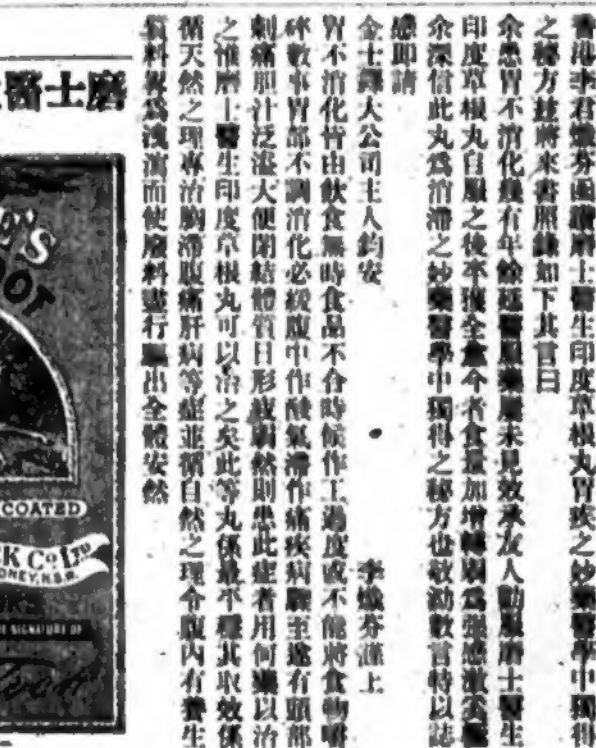 香港李君熾芬函贊磨士醫生印度草根丸胃疾之妙藥醫學中獨得
之秘方茲將來書照錄如下其言曰
余患胃不消化幾有年餘延醫服藥屢未見效承友人勸服磨士醫生
印度草根丸自服之後卒獲全愈今者食量加增轉弱爲强感激
余深信此丸爲消滯之妙藥醫學中獨得之秘方也敬泐數言特以誌
感即請
金士譚大公司主人鈞安
李熾芬謹上
胃不消化皆由飲食無時食品不合時候作工過度或不能將食物嚼
碎數事胃部不調消化必緩腹中作酸氣滯作痛疾病驟至遂有頭部
刺痛胆汁泛溢大便閉結體質日形或弱然則患此症者用何藥以治
之惟磨士醫生印度草根丸可以治之矣此等丸係最平穩其取效係
循天然之理專治胸滯腹痛肝病等症並循自然之理令腹內有養生
質料畧爲淺瀉而使廢料盡行驅出全體安然
醫士磨
E'S
OOT
COATED
CK Co LTD
DNEY, N.S.W.
SIGNATURE OF